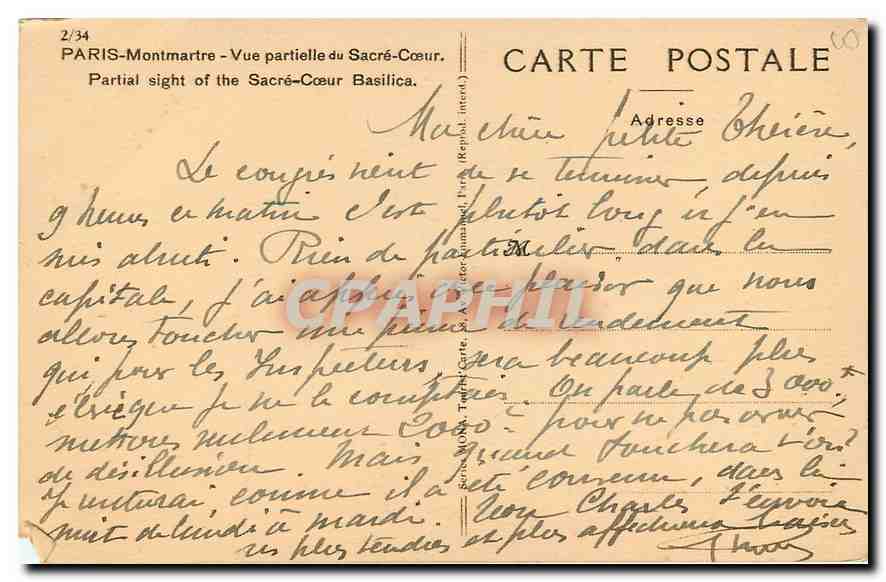 2/34
PARIS-Montmartre - Vue partielle du Sacré-Cœur.
Partial sight of the Sacré-Cœur Basilica.
CARTE POSTALE
Adresse
Series MONA, Tourist-Carte, Av. Victor-Emmanuel, Paris (Reprod. interd.)
M
CPAPHIL
Ma chère petite Thérère,
Le congrès vient de se terminer, depuis
9 heures ce matin c'est plutôt long et j'en
suis abruti. Rien de particulier dans la
capitale, j'ai appris avec plaisir que nous
allons toucher une prime de rendement
qui, pour les Inspecteurs, sera beaucoup plus
élevée que je ne le comptais. On parle de 3000f,
mettons seulement 2000f pour ne pas avoir
de désillusion. Mais quand touchera t'on?
Je rentrerai, comme il a été convenu, dans la
nuit de lundi à mardi. Ton Charles t'envoie
ses plus tendres et plus affectueux baisers